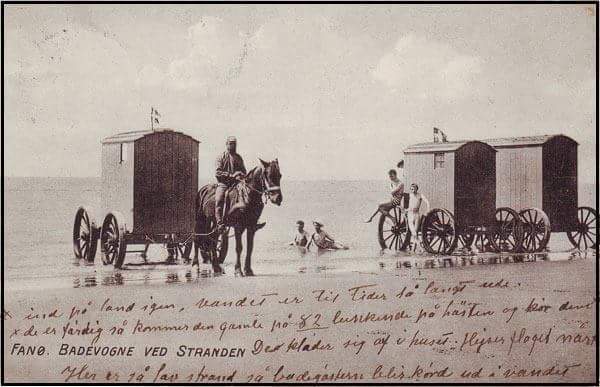 x ind på land igen, vandet er til Tider så langt ude.
x de er færdig så kommer den gamle på 82 luskende på hästen og kör dem
FANØ. BADEVOGNE VED STRANDEN
De klæder sig af i huset. Hejser flaget når
Her er så lav strand så badegästerne blir körd ud i vandet